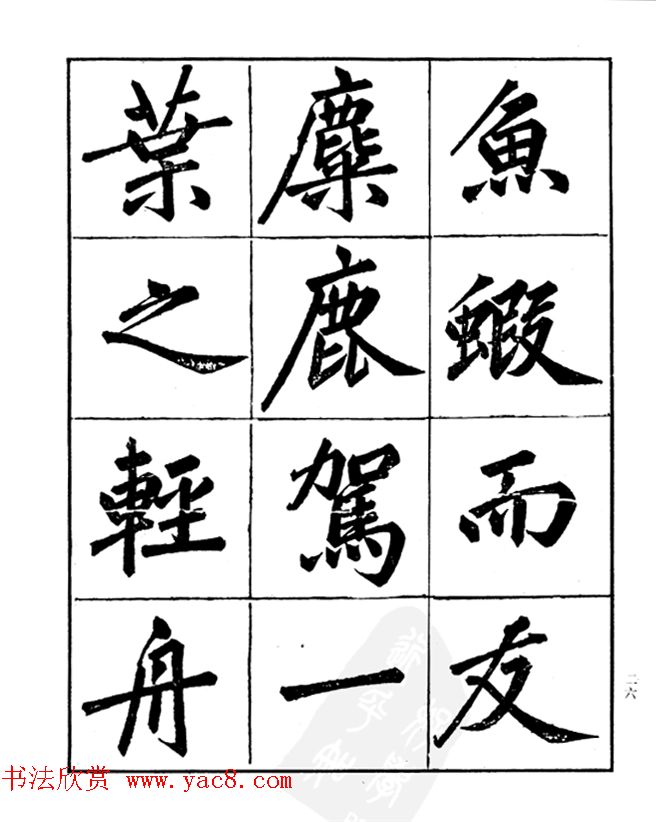 魚蝦而友
麋鹿駕一
葉之輕舟
二六
书法欣赏 www.yac8.com